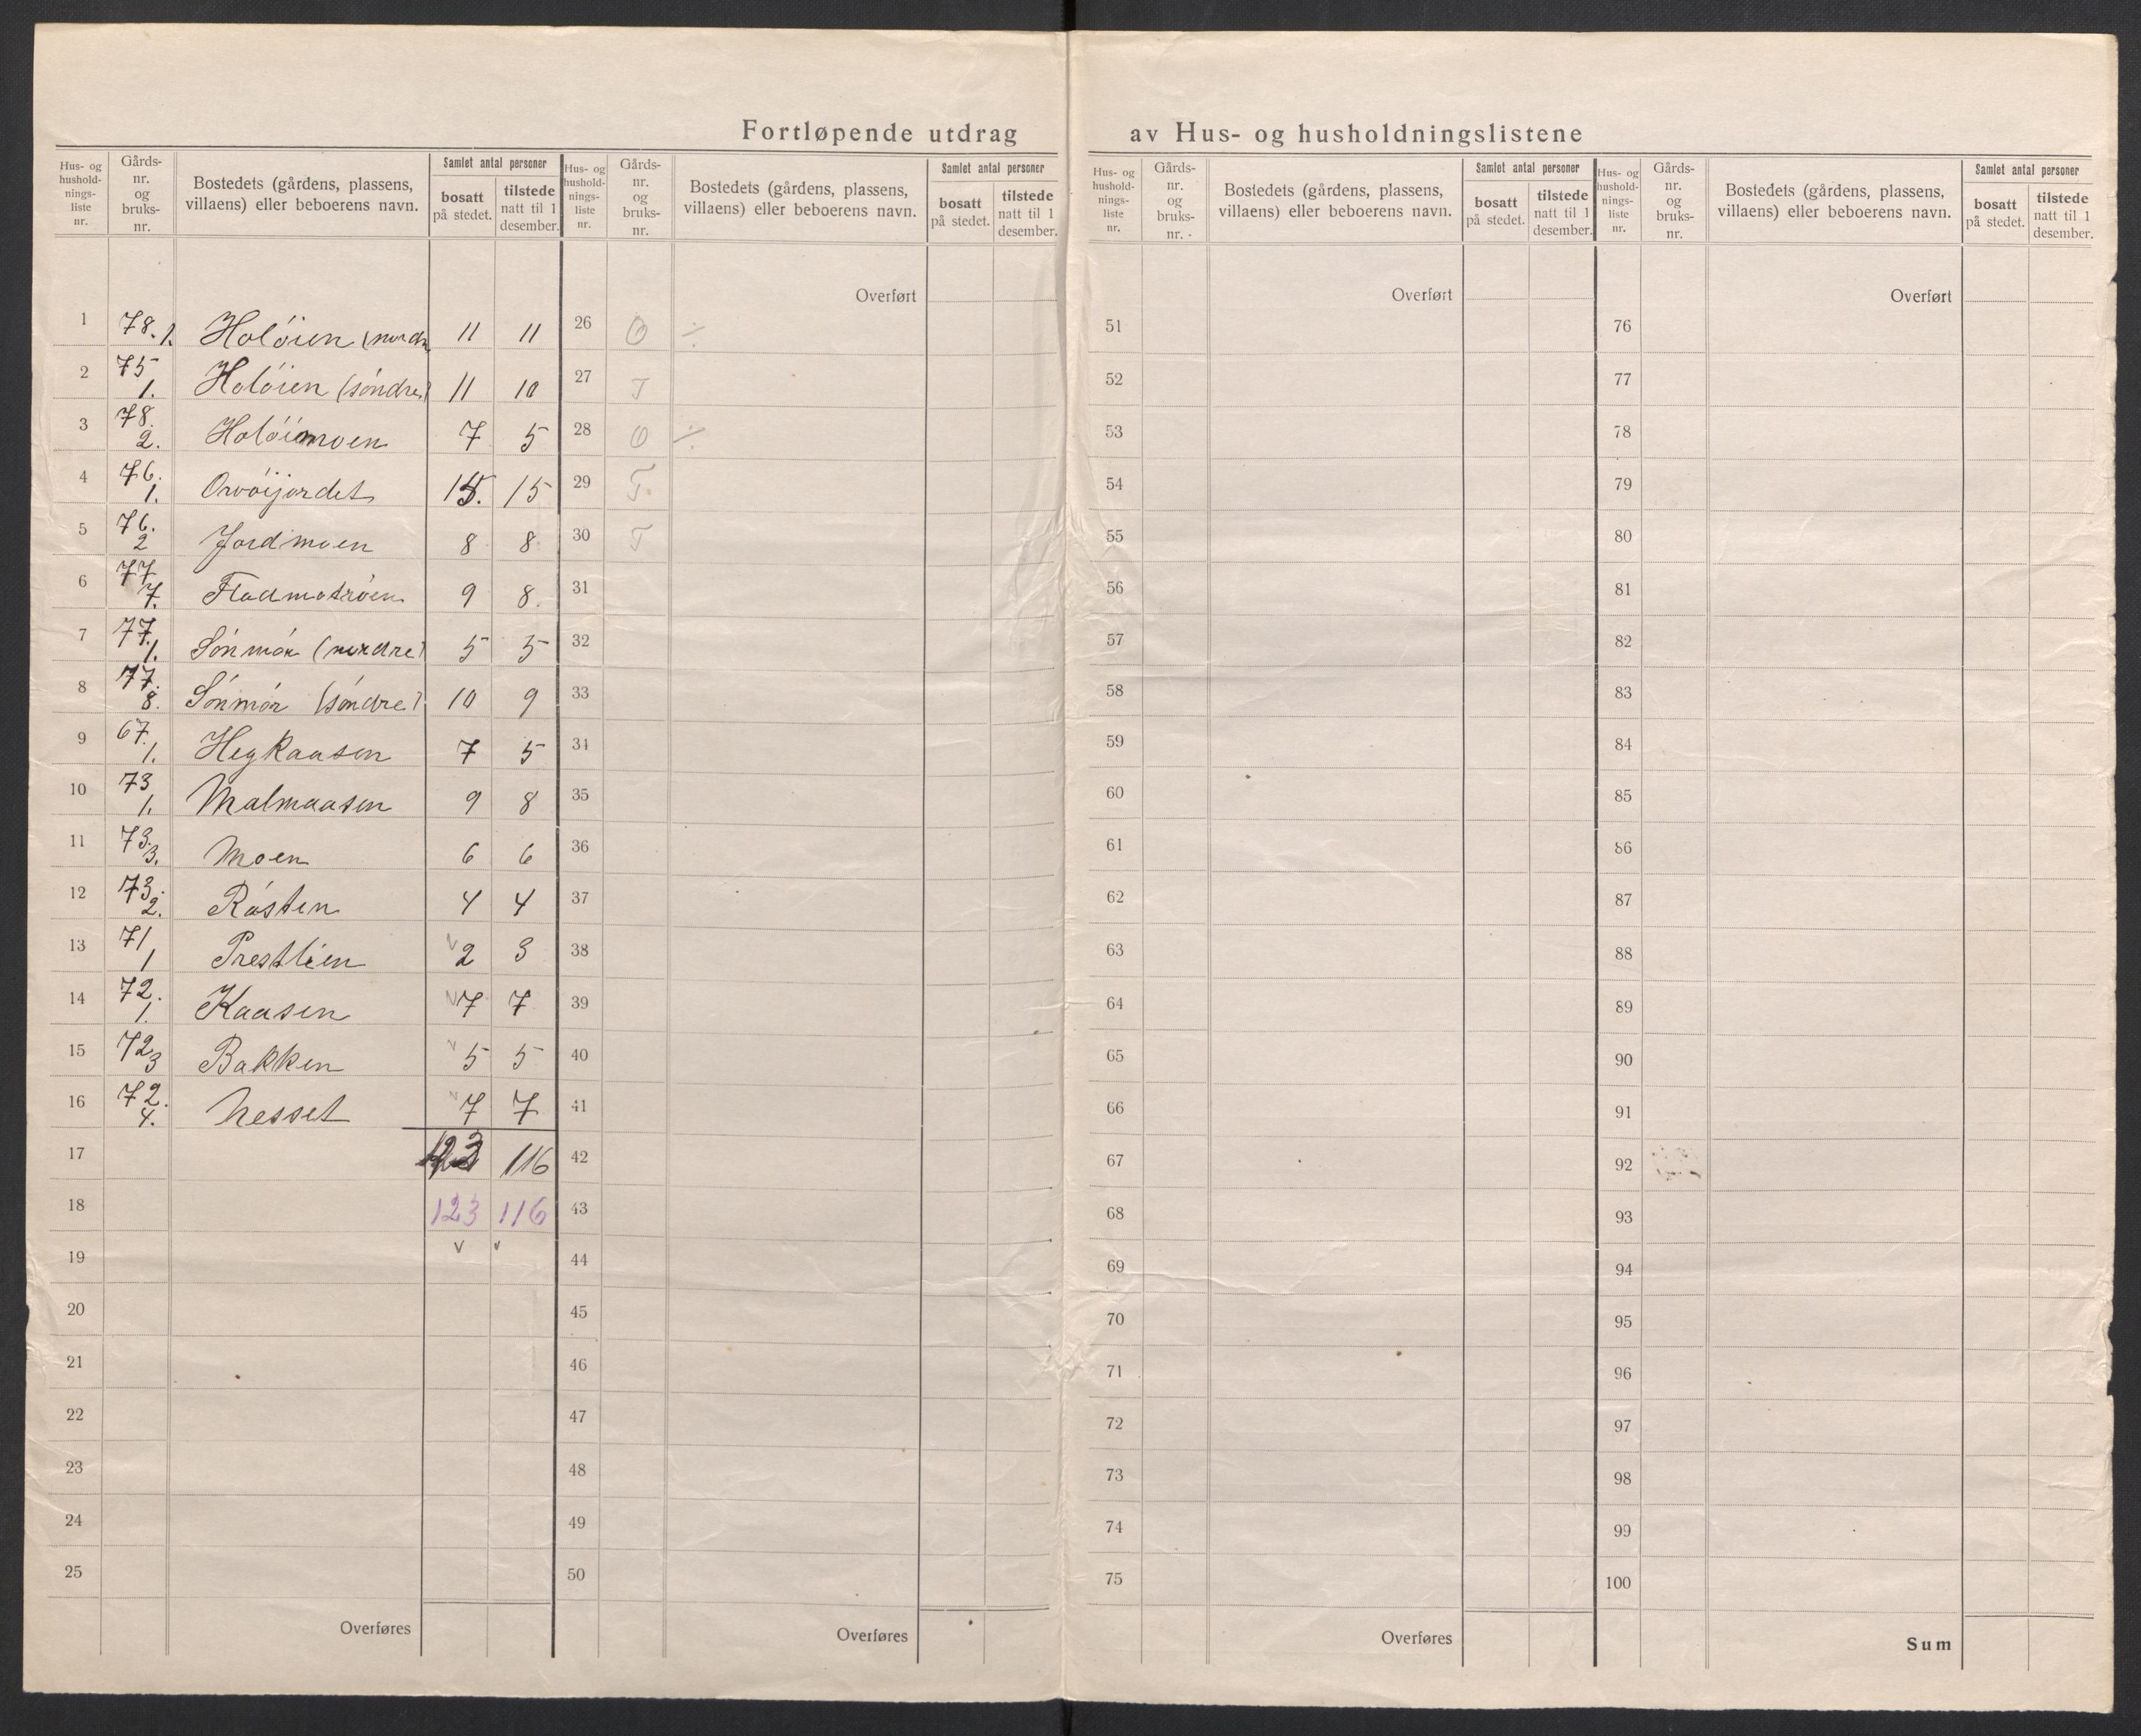 Fortløpende utdrag av Hus- og husholdningslistene
Hus- og hushold-nings-liste nr. Gårds-nr. og bruks-nr. Bostedets (gårdens, plassens, villaens) eller beboerens navn. Samlet antal personer bosatt på stedet. tilstede natt til 1 desember.
Hus- og hushold-nings-liste nr. Gårds-nr. og bruks-nr. Bostedets (gårdens, plassens, villaens) eller beboerens navn. Samlet antal personer bosatt på stedet. tilstede natt til 1 desember.
Hus- og hushold-nings-liste nr. Gårds-nr. og bruks-nr. Bostedets (gårdens, plassens, villaens) eller beboerens navn. Samlet antal personer bosatt på stedet. tilstede natt til 1 desember.
Hus- og hushold-nings-liste nr. Gårds-nr. og bruks-nr. Bostedets (gårdens, plassens, villaens) eller beboerens navn. Samlet antal personer bosatt på stedet. tilstede natt til 1 desember.
Overført Overført Overført
1 78. 1. Holøien (nordr 11 11 26 O ÷ 51 76
2 75 1. Holøien (søndre) 11 10 27 T 52 77
3 78. 2. Holøimoen 7 5 28 O ÷ 53 78
4 76. 1. Orvøijordet 15. 15 29 T. 54 79
5 76. 2 Jordmoen 8 8 30 T 55 80
6 77 7. Fladmotrøen 9 8. 31 56 81
7 77. 1. Sønmør (nordre) 5 5 32 57 82
8 77. 8. Sønmør (søndre) 10 9 33 58 83
9 67. 1. Hegkaasen 7 5 34 59 84
10 73 1. Malmaasen 9 8 35 60 85
11 73. 3. Moen 6 6 36 61 86
12 73. 2. Røsten 4 4 37 62 87
13 71 1 Prestlien 2 3 38 63 88
14 72. 1. Kaasen 7 7 39 64 89
15 72 3 Bakken 5 5 40 65 90
16 72. 4. Nesset 7 7 41 66 91
17 123 116 42 67 92
18 123 116 43 68 93
19 v v 44 69 94
20 45 70 95
21 46 71 96
22 47 72 97
23 48 73 98
24 49 74 99
25 50 75 100
Overføres Overføres Overføres Sum